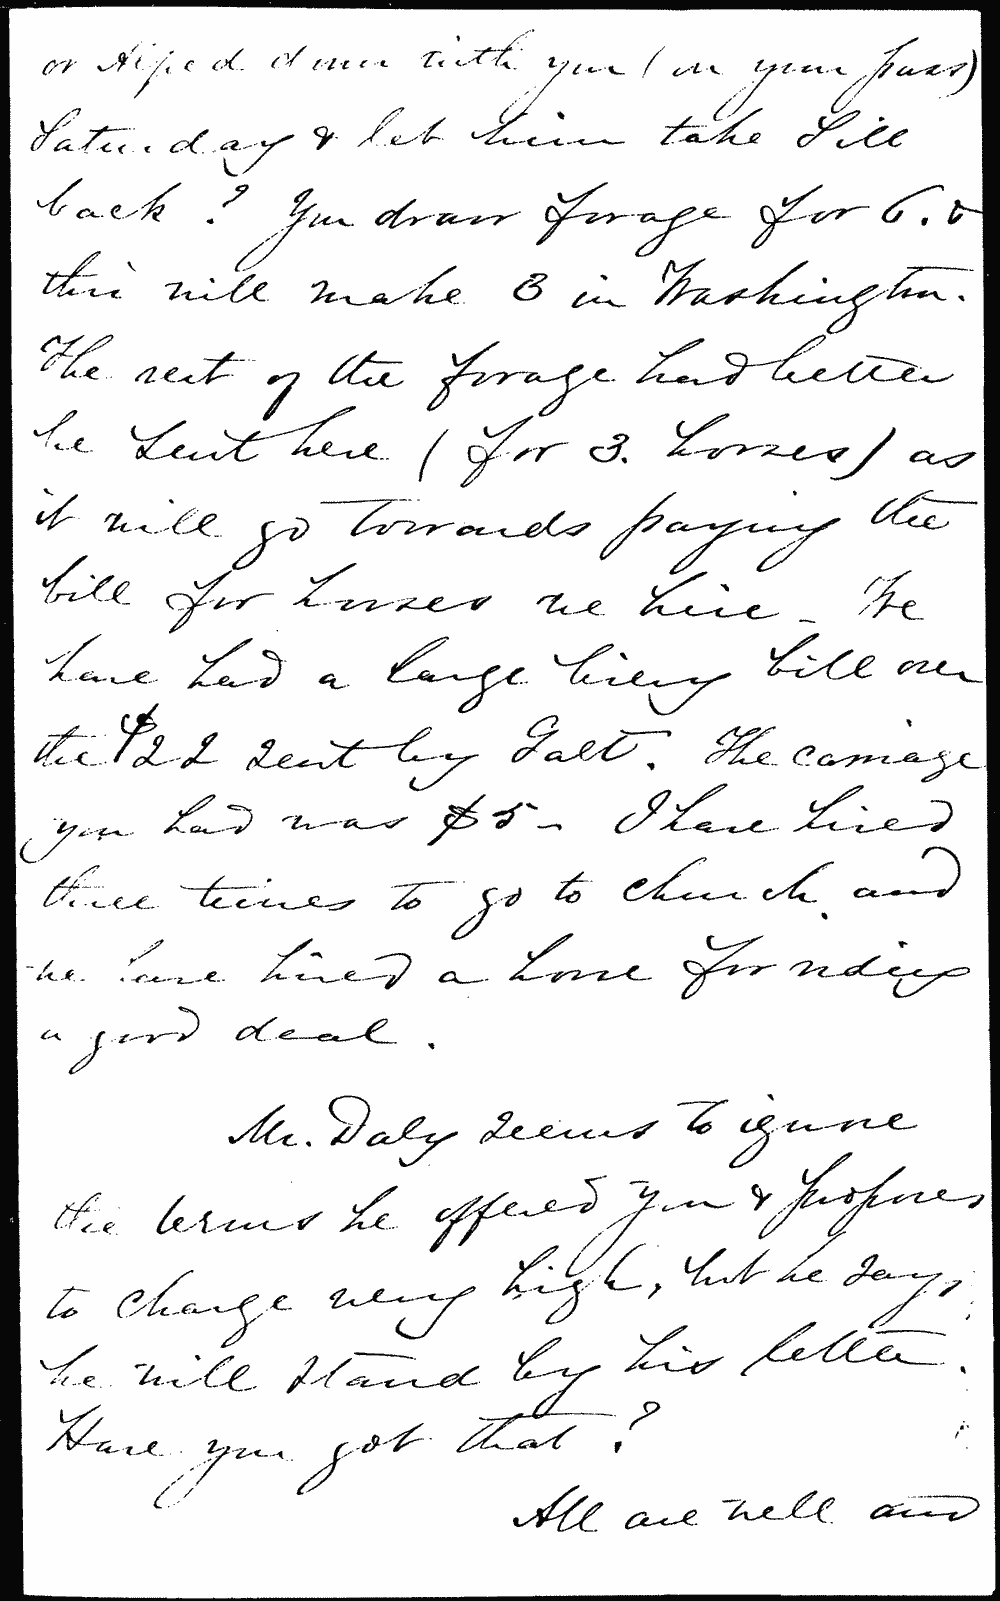 or Alfred down with you (on your pass)
Saturday & let him take Lill
back? You draw forage for 6. &
this will make 3 in Washington.
The rest of the forage had better
be sent here (for 3. horses) as
it will go towards paying the
bill for horses we hire - We
have had a large livery bill over
the $22 sent by Galt. The carriage
you had was $5 - I have hired
three times to go to church and
we have hired a horse for riding
a good deal.
Mr. Daly seems to ignore
the terms he offered you & proposes
to charge very high, but he says
he will stand by his letter.
Have you got that?
All are well and